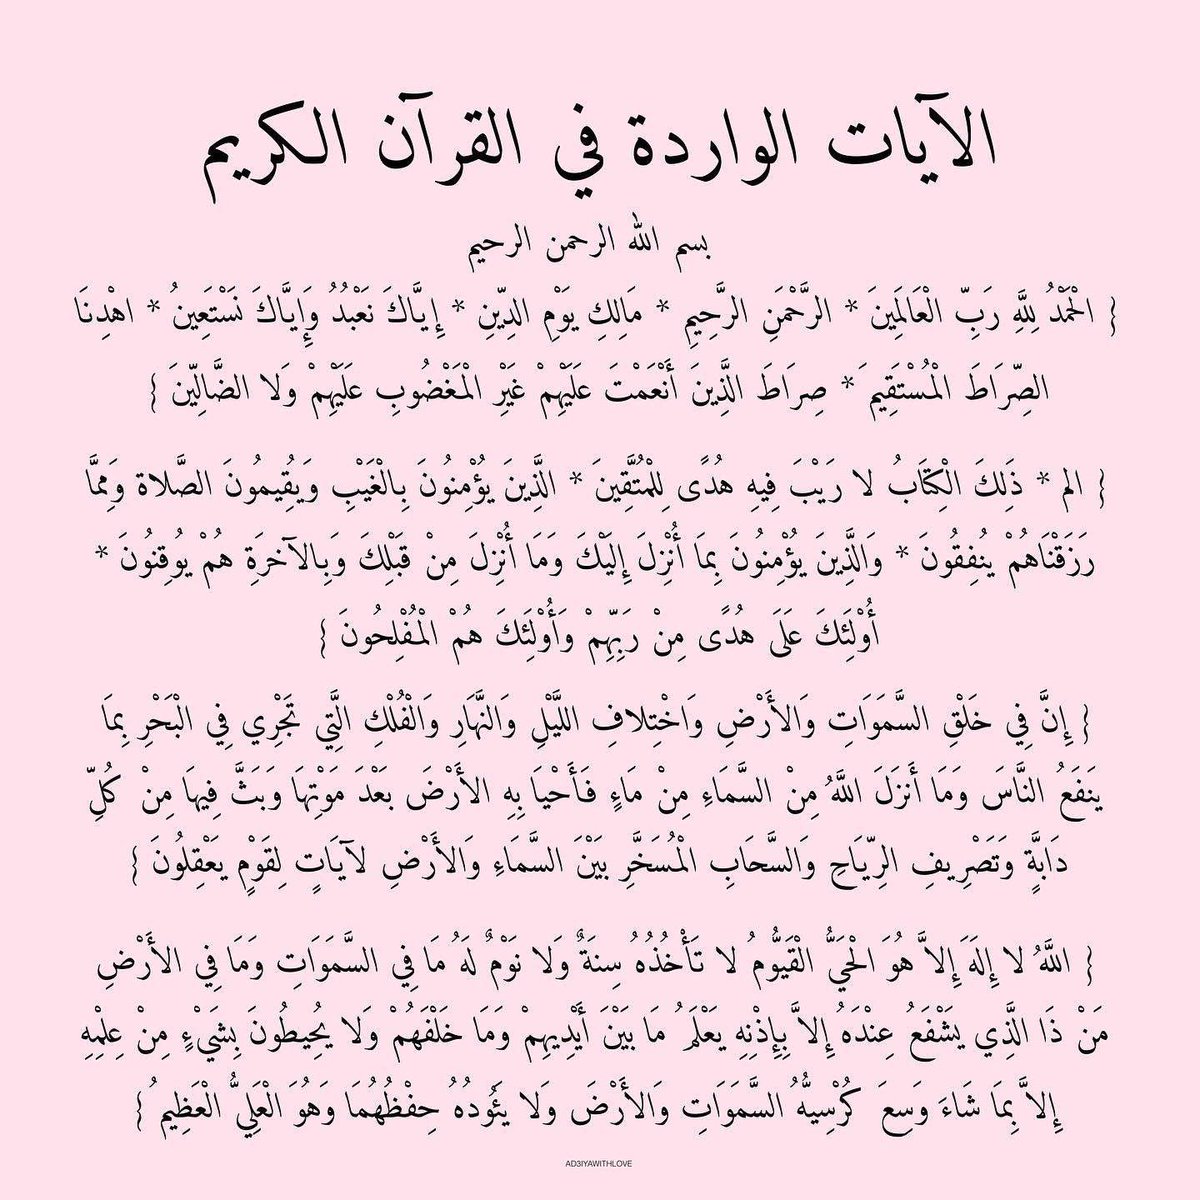 الآيات الواردة في القرآن الكريم
بسم الله الرحمن الرحيم
{ الْحَمْدُ لِلَّهِ رَبِّ الْعَالَمِينَ * الرَّحْمَنِ الرَّحِيمِ * مَالِكِ يَوْمِ الدِّينِ * إِيَّاكَ نَعْبُدُ وَإِيَّاكَ نَسْتَعِينُ * اهْدِنَا
الصِّرَاطَ الْمُسْتَقِيمَ * صِرَاطَ الَّذِينَ أَنْعَمْتَ عَلَيْهِمْ غَيْرِ الْمَغْضُوبِ عَلَيْهِمْ وَلا الضَّالِّينَ }
{ الم * ذَلِكَ الْكِتَابُ لا رَيْبَ فِيهِ هُدًى لِلْمُتَّقِينَ * الَّذِينَ يُؤْمِنُونَ بِالْغَيْبِ وَيُقِيمُونَ الصَّلاة وَمِمَّا
رَزَقْنَاهُمْ يُنفِقُونَ * وَالَّذِينَ يُؤْمِنُونَ بِمَا أُنْزِلَ إِلَيْكَ وَمَا أُنْزِلَ مِنْ قَبْلِكَ وَبِالآخرَةِ هُمْ يُوقِنُونَ *
أُوْلَئِكَ عَلَىَ هُدًى مِنْ رَبِّهِمْ وَأُوْلَئِكَ هُمْ الْمُفْلِحُونَ }
{ إِنَّ فِي خَلْقِ السَّمَوَاتِ وَالأَرْضِ وَاخْتِلافِ اللَّيْلِ وَالنَّهَارِ وَالْفُلْكِ الَّتِي تَجْرِي فِي الْبَحْرِ بِمَا
يَنفَعُ النَّاسَ وَمَا أَنزَلَ اللَّهُ مِنْ السَّمَاءِ مِنْ مَاءٍ فَأَحْيَا بِهِ الأَرْضَ بَعْدَ مَوْتِهَا وَبَثَّ فِيهَا مِنْ كُلِّ
دَابَّةٍ وَتَصْرِيفِ الرِّيَاحِ وَالسَّحَابِ الْمُسَخَّرِ بَيْنَ السَّمَاءِ وَالأَرْضِ لآيَاتٍ لِقَوْمٍ يَعْقِلُونَ }
{ اللَّهُ لا إِلَهَ إِلاَّ هُوَ الْحَيُّ الْقَيُّومُ لا تَأْخُذُهُ سِنَةٌ وَلا نَوْمٌ لَهُ مَا فِي السَّمَوَاتِ وَمَا فِي الأَرْضِ
مَنْ ذَا الَّذِي يَشْفَعُ عِنْدَهُ إِلاَّ بِإِذْنِهِ يَعْلَمُ مَا بَيْنَ أَيْدِيهِمْ وَمَا خَلْفَهُمْ وَلا يُحِيطُونَ بِشَيْءٍ مِنْ عِلْمِهِ
إِلاَّ بِمَا شَاءَ وَسِعَ كُرْسِيُّهُ السَّمَوَاتِ وَالأَرْضَ وَلا يَئُودُهُ حِفْظُهُمَا وَهُوَ الْعَلِيُّ الْعَظِيمُ }
AD3IYAWITHLOVE